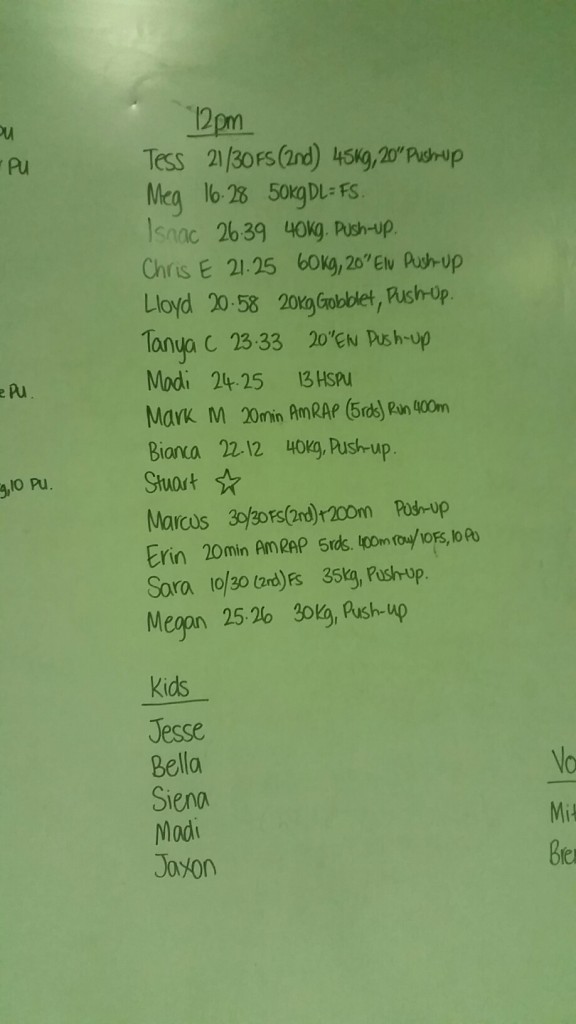 PU
PU
e PU.
g, 10 PU.
12pm
Tess 21/30 FS (2nd) 45kg, 20" Push-up
Meg 16.28 50kg DL = FS.
Isaac 26.39 40kg. Push-up.
Chris E 21.25 60kg, 20" EN Push-up
Lloyd 20.58 20kg Gobblet, Push-up.
Tanya C 23.33 20" EN Push-up
Madi 24.25 13 HSPU
Mark M 20min AmRAP (5rds) Run 400m
Bianca 22.12 40kg, Push-up.
Stuart ☆
Marcus 30/30 FS (2nd) + 200m Push-up
Erin 20min AMRAP 5rds. 400m row/10 FS, 10 PU
Sara 10/30 (2nd) FS 35kg, Push-up.
Megan 25.26 30kg, Push-up
Kids
Jesse
Bella
Siena
Madi
Jaxon
Vo
Mit
Bre